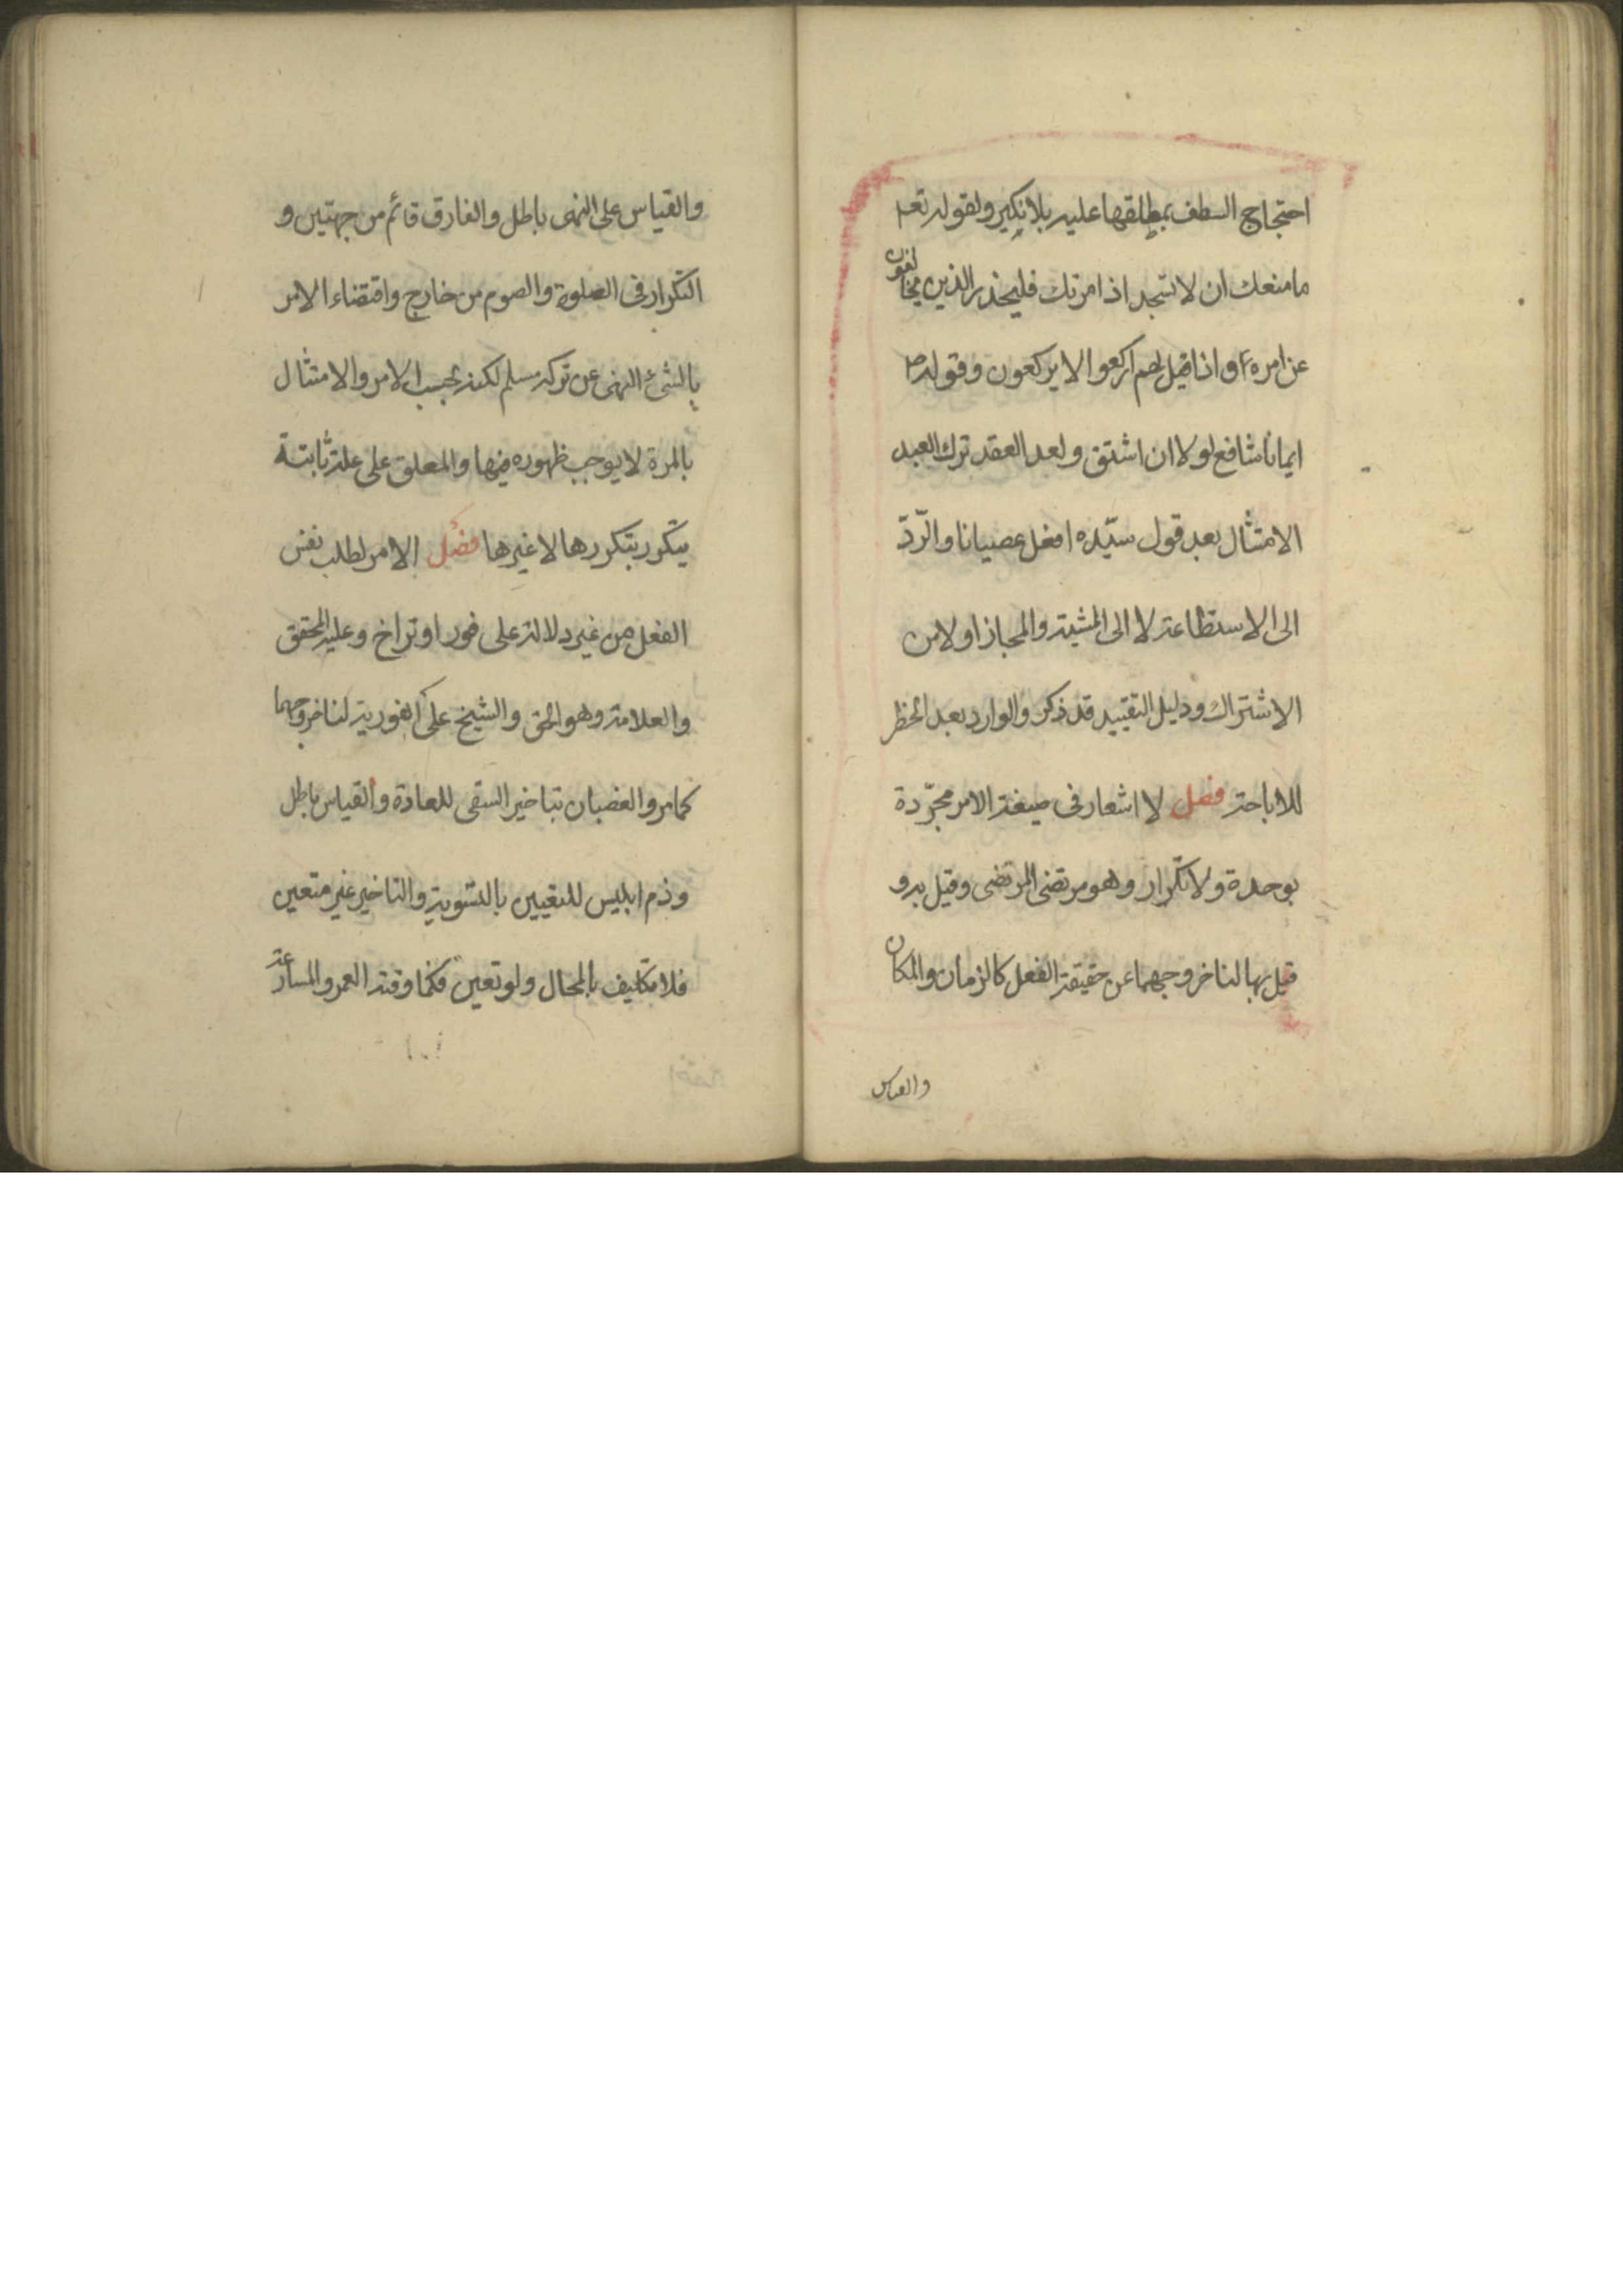 احتجاج السلف بمطلقها عليه بلا نكير ولقوله تعم
ما منعك ان لا تسجد اذ امرتك فليحذر الذين يخالفون
عن امره واذا قيل لهم اركعوا لا يركعون وقوله ص
انما انا شافع لولا ان اشتق ولعد العقد ترك العبد
الامتثال بعد قول سيّده افعل عصيانا والرّدّ
الى الاستطاعة لا الى المشية والمجاز اولا من
الاشتراك ودليل التقييد قد ذكر والوارد بعد الحظر
للاباحة فصل لا اشعار فى صيغة الامر مجرّدة
بوحدة ولا تكرار وهو مرتضى المرتضى وقيل به و
قيل بها لنا خروجهما عن حقيقة الفعل كالزمان والمكان
والقياس
والقياس على النهى باطل والفارق قائم من جهتين و
التكرار فى الصلوة والصوم من خارج واقتضاء الامر
بالشئ النهى عن تركه مسلم لكنه بحسب الامر والامتثال
بالمرة لا يوجب ظهوره فيها والمعلق على علة ثابتة
يتكرر بتكررها لا غيرها فصل الامر لطلب نفس
الفعل من غير دلالة على فور او تراخ وعليه المحقق
والعلامة وهو الحق والشيخ على الفورية لنا خروجهما
كما مر والعصيان بتاخير السقى للعادة والقياس باطل
وذم ابليس للتعيين بالتسوية والتاخير غير متعين
فلا تكليف بالمحال ولو تعين فكما وقته العمر والمسارعة